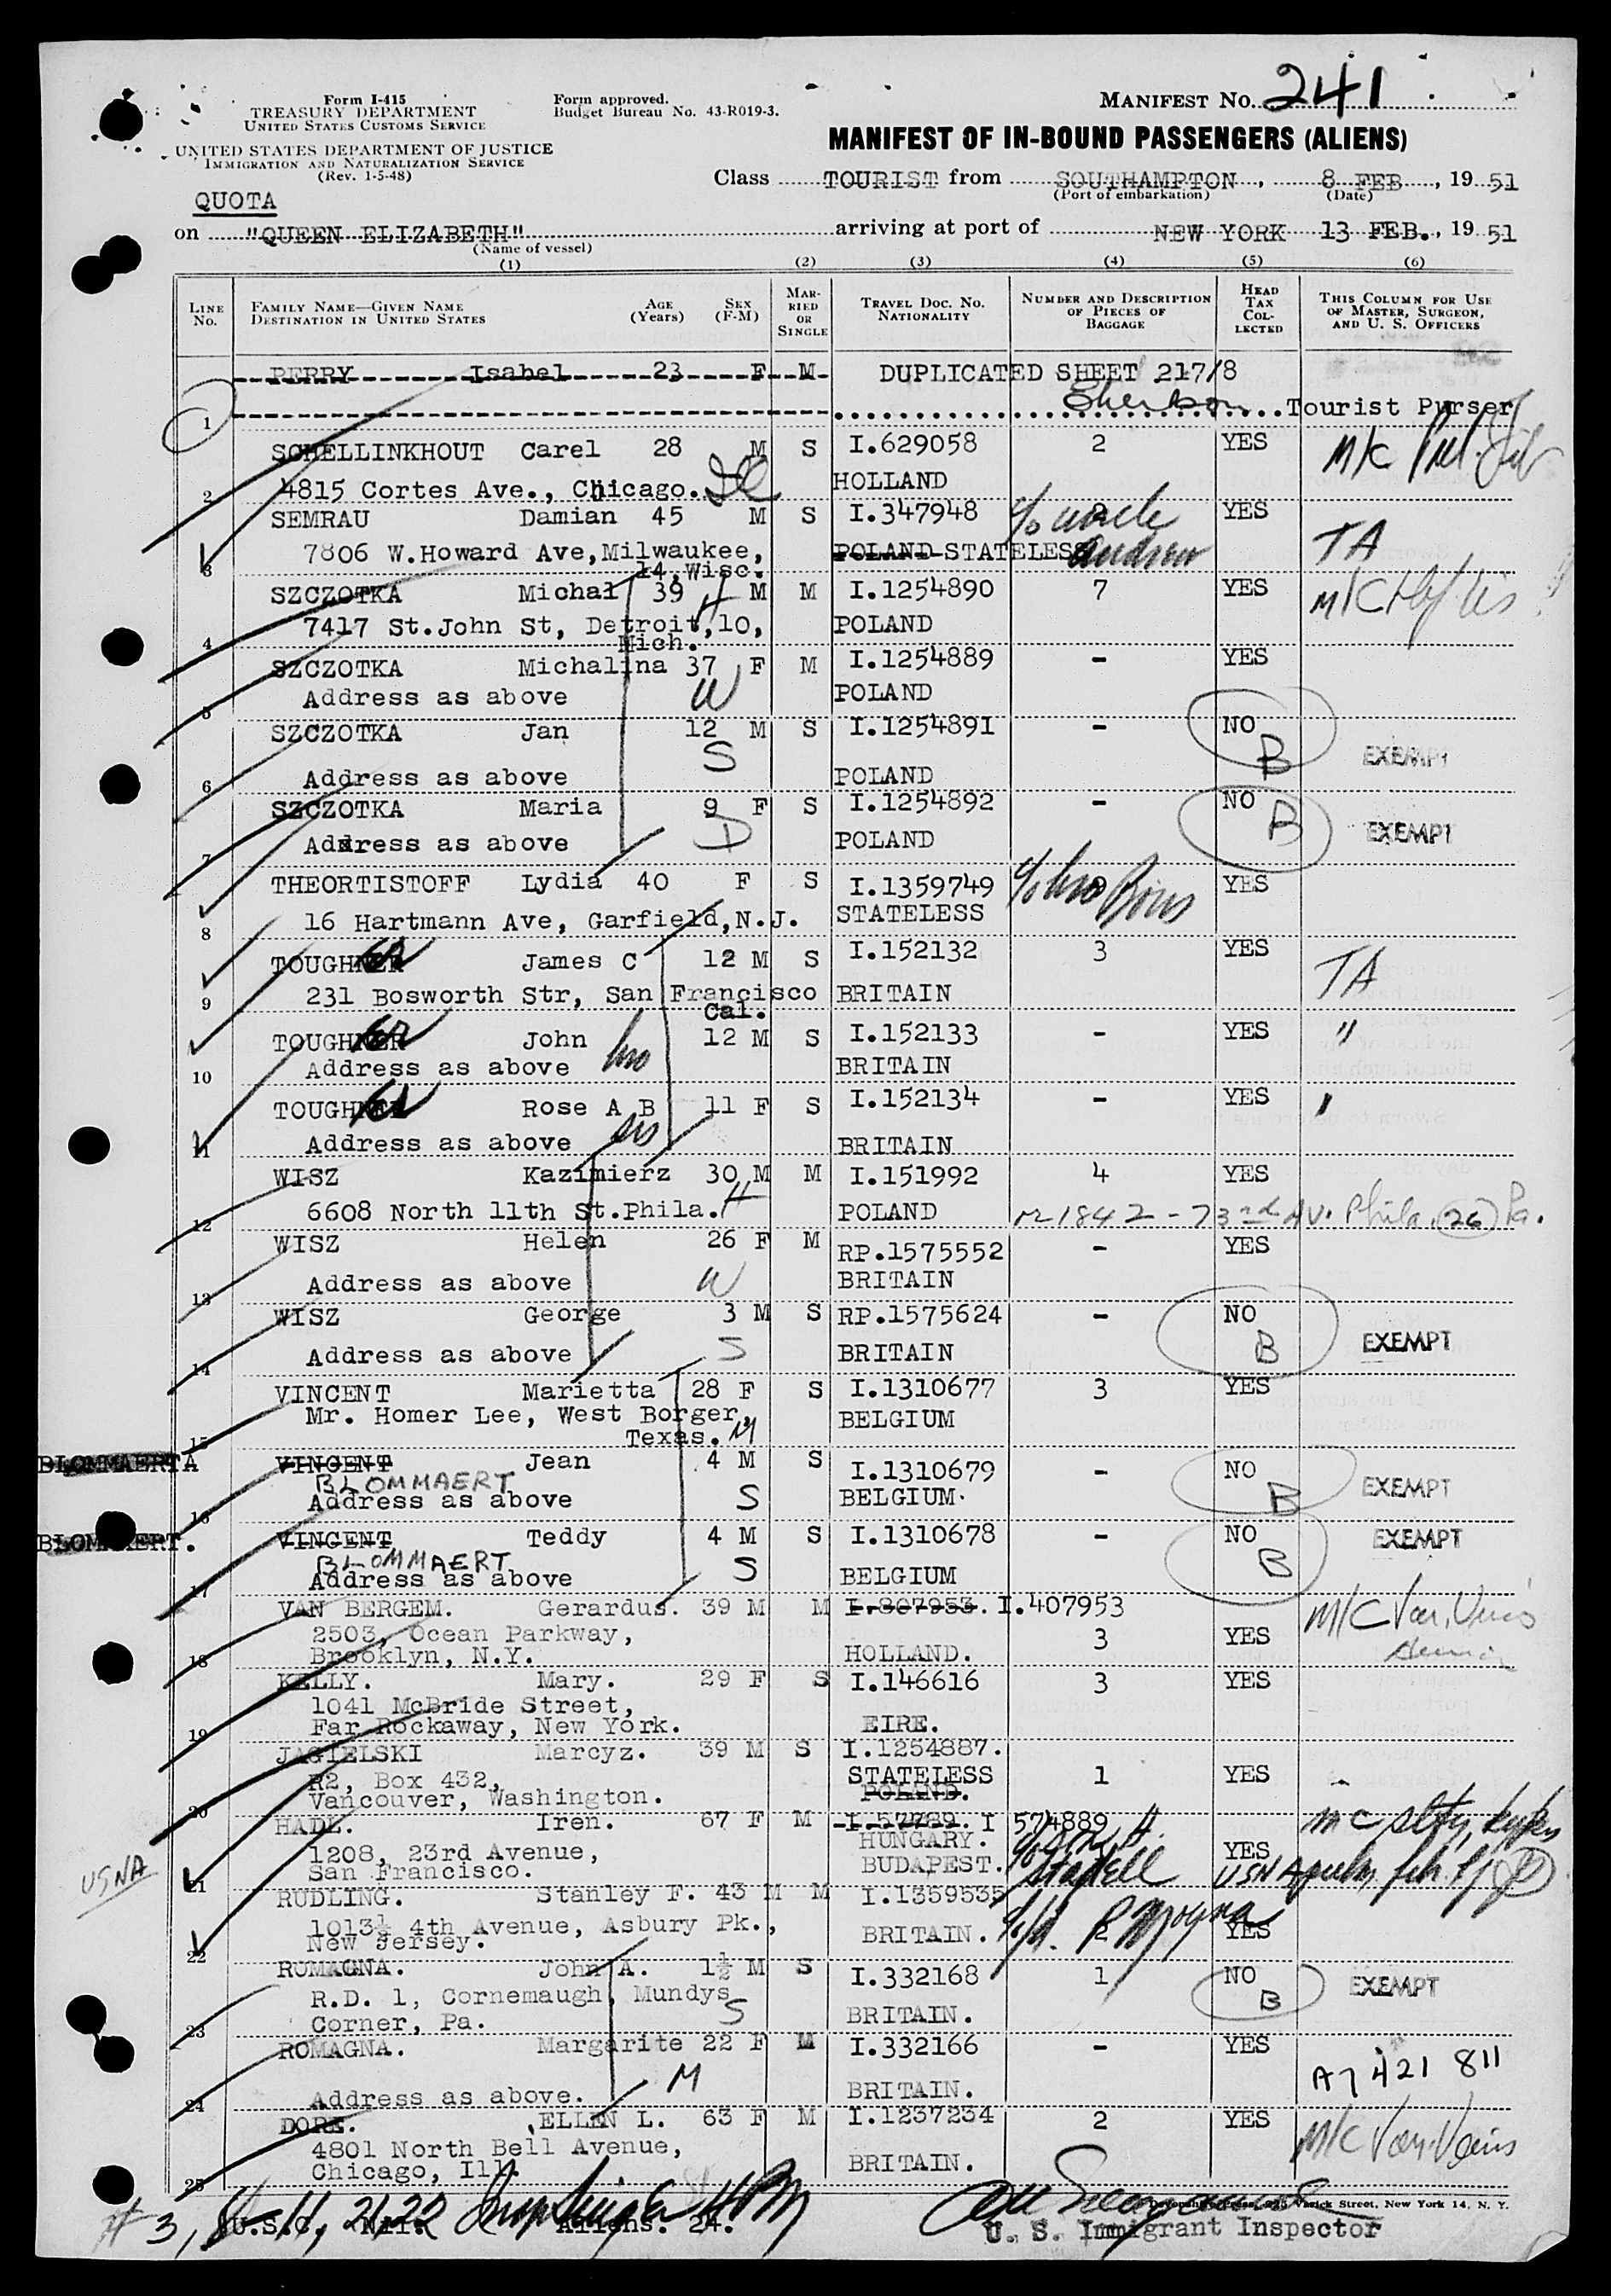 Form I-415
TREASURY DEPARTMENT
UNITED STATES CUSTOMS SERVICE
UNITED STATES DEPARTMENT OF JUSTICE
IMMIGRATION AND NATURALIZATION SERVICE
(Rev. 1-5-48)
Form approved.
Budget Bureau No. 43-R019-3.
MANIFEST No. 241
MANIFEST OF IN-BOUND PASSENGERS (ALIENS)
Class TOURIST from SOUTHAMPTON, 8 FEB, 1951
(Port of embarkation) (Date)
QUOTA
on "QUEEN ELIZABETH" arriving at port of NEW YORK 13 FEB., 1951
(Name of vessel)
(1) (2) (3) (4) (5) (6)
LINE No. FAMILY NAME—GIVEN NAME DESTINATION IN UNITED STATES AGE (Years) SEX (F-M) MARRIED OR SINGLE TRAVEL DOC. No. NATIONALITY NUMBER AND DESCRIPTION OF PIECES OF BAGGAGE HEAD TAX COLLECTED THIS COLUMN FOR USE OF MASTER, SURGEON, AND U. S. OFFICERS
PERRY Isabel 23 F M DUPLICATED SHEET 217/8
1 Tourist Purser
SCHELLINKHOUT Carel 28 M S I.629058 2 YES M/C
2 4815 Cortes Ave., Chicago. Ill HOLLAND
SEMRAU Damian 45 M S I.347948 c/o uncle YES TA
3 7806 W.Howard Ave,Milwaukee, POLAND STATELESS Andrew
14,Wisc.
SZCZOTKA Michał 39 H M M I.1254890 7 YES M/C
4 7417 St.John St, Detroit,10, POLAND
Mich.
SZCZOTKA Michalina 37 F M I.1254889 - YES
5 Address as above W POLAND
SZCZOTKA Jan 12 M S I.1254891 - NO
6 Address as above S POLAND B EXEMPT
SZCZOTKA Maria 9 F S I.1254892 - NO B
7 Address as above D POLAND EXEMPT
THEORTISTOFF Lydia 40 F S I.1359749 YES
8 16 Hartmann Ave, Garfield,N.J. STATELESS
TOUGHER James C 12 M S I.152132 3 YES TA
9 231 Bosworth Str, San Francisco BRITAIN
Cal.
TOUGHER John 12 M S I.152133 - YES "
10 Address as above bro BRITAIN
TOUGHER Rose A B 11 F S I.152134 - YES "
11 Address as above sis BRITAIN
WISZ Kazimierz 30 M M I.151992 4 YES
12 6608 North 11th St.Phila. H POLAND 1842 - 73rd Av. Phila. (26) Pa.
WISZ Helen 26 F M RP.1575552 - YES
13 Address as above W BRITAIN
WISZ George 3 M S RP.1575624 - NO
14 Address as above S BRITAIN B EXEMPT
VINCENT Marietta 28 F S I.1310677 3 YES
15 Mr. Homer Lee, West Borger, BELGIUM
Texas. M
BLOMMAERT VINCENT Jean 4 M S I.1310679 - NO
BLOMMAERT
16 Address as above S BELGIUM. B EXEMPT
BLOMMAERT. VINCENT Teddy 4 M S I.1310678 - NO EXEMPT
BLOMMAERT
17 Address as above S BELGIUM B
VAN BERGEM. Gerardus. 39 M M I.807953. I.407953
2503, Ocean Parkway, 3 YES M/C
18 Brooklyn, N.Y. HOLLAND.
KELLY. Mary. 29 F S I.146616 3 YES
1041 McBride Street,
19 Far Rockaway, New York. EIRE.
JAGIELSKI Marcyz. 39 M S I.1254887.
R2, Box 432, STATELESS 1 YES
20 Vancouver, Washington. POLAND.
HADL. Iren. 67 F M I.57789. I 574889
1208, 23rd Avenue, HUNGARY. YES
21 San Francisco. BUDAPEST.
USNA
RUDLING. Stanley F. 43 M M I.1359535
1013½ 4th Avenue, Asbury Pk., BRITAIN. 2 YES
22 New Jersey.
ROMAGNA. John A. 1½ M S I.332168 1 NO EXEMPT
R.D. 1, Cornemaugh, Mundys S B
23 Corner, Pa. BRITAIN.
ROMAGNA. Margarite 22 F M I.332166 - YES
M A7 421 811
24 Address as above. BRITAIN.
DORE. ELLEN L. 63 F M I.1237234 2 YES M/C
4801 North Bell Avenue,
25 Chicago, Ill. BRITAIN.
Devonshire Press, 225 Varick Street, New York 14, N. Y.
U.S.C. Nil. Aliens. 24.
U. S. Immigrant Inspector